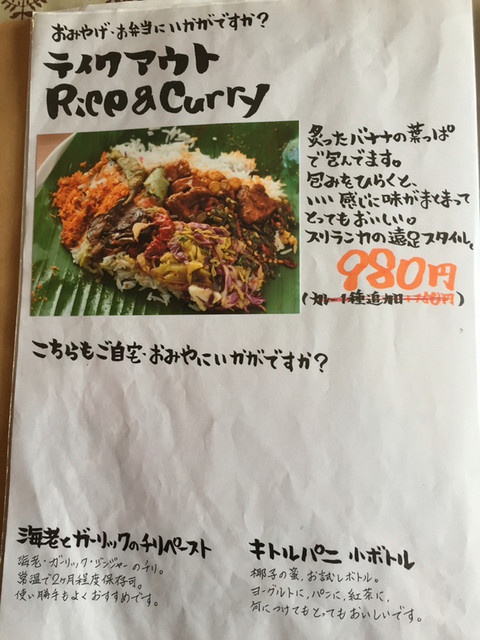 おみやげ・お弁当にいかがですか？
ティクアウト
Rice & Curry
炙ったバナナの葉っぱ
で包んでます。
包みをひらくと、
いい感じに味がまとまって
とってもおいしい。
スリランカの遠足スタイル。
980円
(カレー1種追加 +140円)
こちらもご自宅・おみやにいかがですか？
海老とガーリックのチリペースト
海老・ガーリック・ジンジャーのチリ。
常温で2ヶ月程度保存可。
使い勝手もよくおすすめです。
キトルパニ 小ボトル
椰子の蜜、お試しボトル。
ヨーグルトに、パンに、紅茶に、
何につけてもとってもおいしいです。